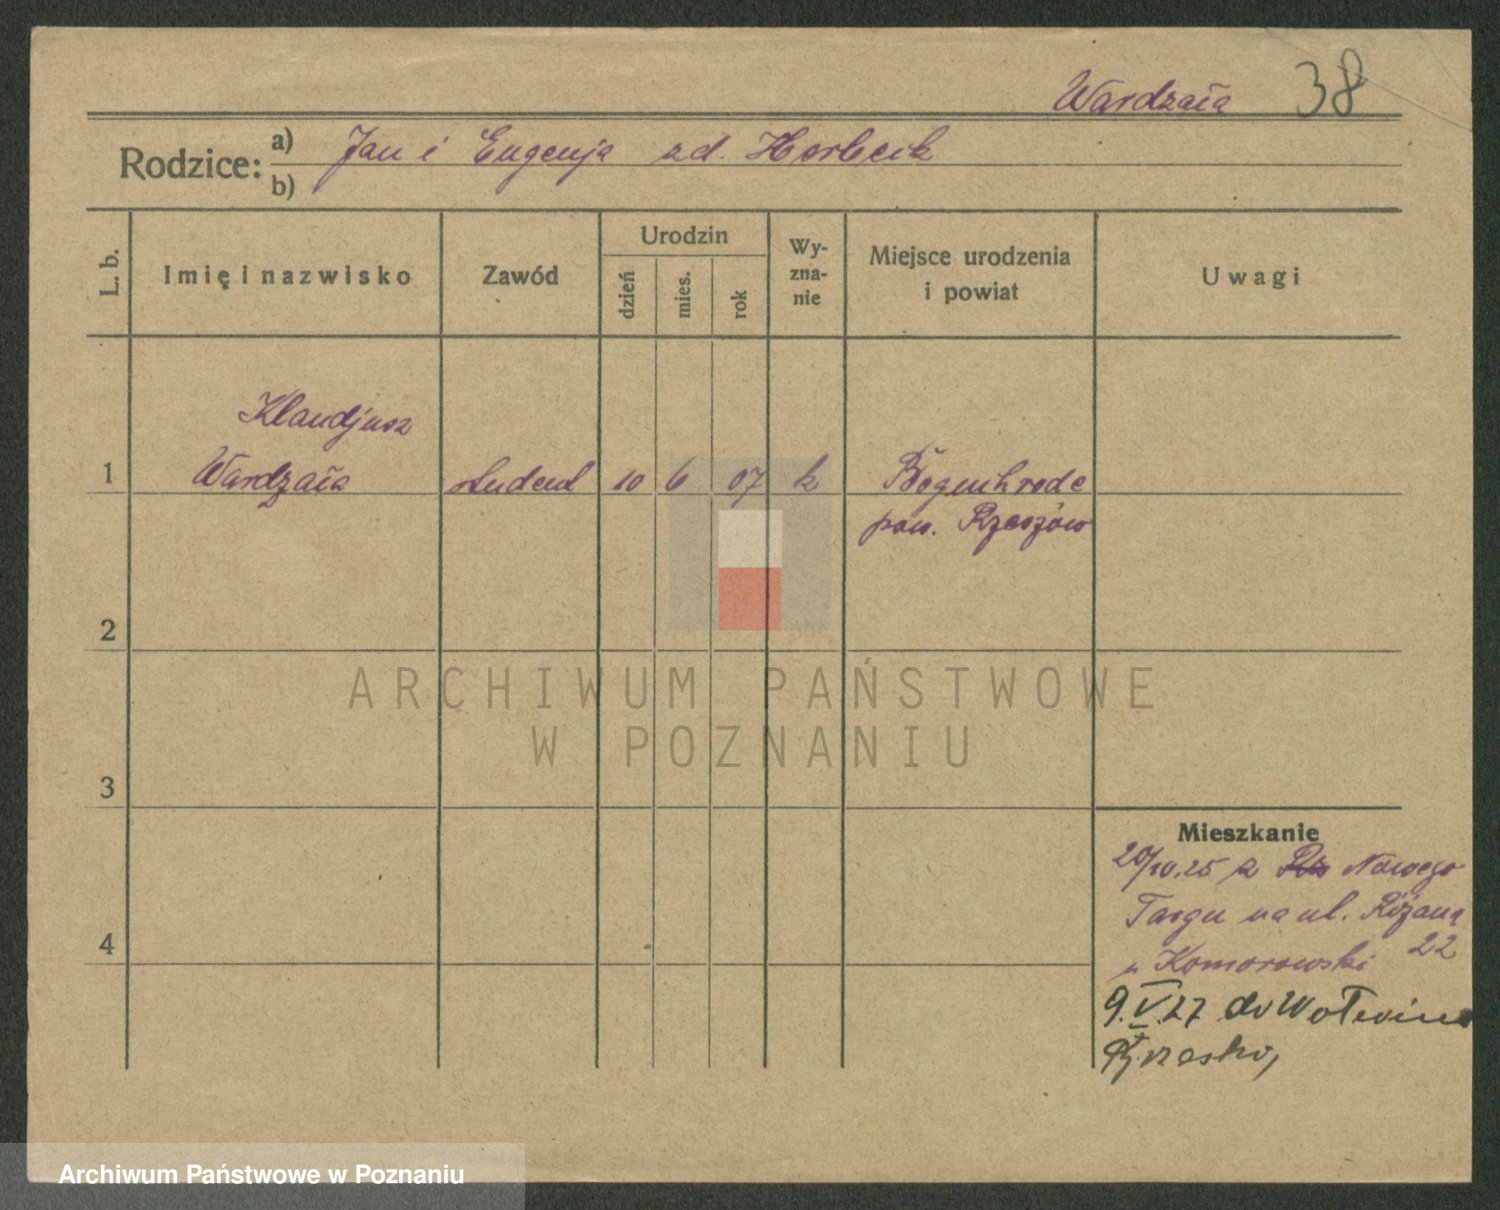 Wardzała 38
Rodzice: a) Jan i Eugenja zd. Horbcik
b)
L. b.
Imię i nazwisko
Zawód
Urodzin
dzień
mies.
rok
Wy-
zna-
nie
Miejsce urodzenia
i powiat
Uwagi
Klaudjusz
1 Wardzała student 10 6 07 k
pow. Rzeszów
2
3
4
ARCHIWUM PAŃSTWOWE
W POZNANIU
Mieszkanie
20/10.25 z Nowego
Targu na ul. Różaną
u Komorowski 22
9.V.27 do
Archiwum Państwowe w Poznaniu